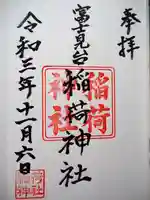 奉拝
富士見台稲荷神社
稲荷
神社
令和三年十一月六日